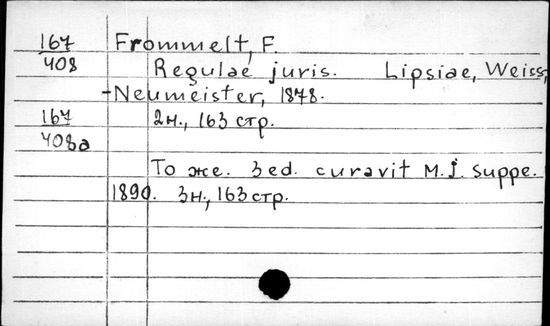 167 Frommelt, F.
408 Regulae juris. Lipsiae, Weiss,
-Neumeister, 1878.
167 2н., 163 стр.
408a
То же. 3 ed. curavit M.J. Suppe.
1890. 3н., 163 стр.